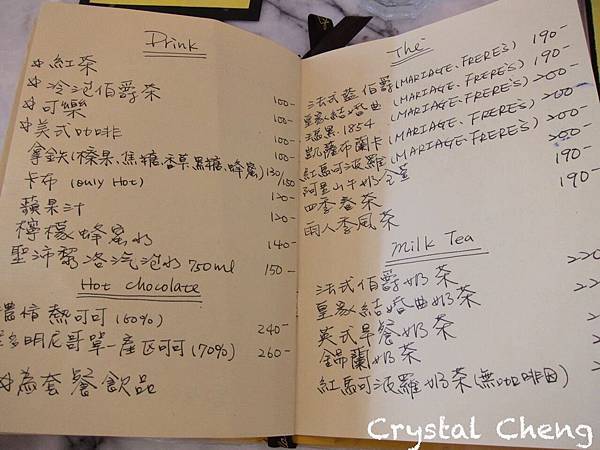 Drink
☆紅茶
☆冷泡伯爵茶 100-
☆可樂 100-
☆美式咖啡 100-
拿鐵(榛果、焦糖、香草、黑糖、蜂蜜) 130/150
卡布 (only Hot) 120-
蘋果汁 120-
檸檬蜂蜜水 140-
聖沛黎洛汽泡水 750ml 150-
Hot chocolate
濃情熱可可(60%) 240-
多明尼哥單一產区可可(70%) 260-
☆為套餐飲品
Thé
法式藍伯爵(MARIAGE FRERES) 190-
皇家結婚曲(MARIAGE FRERES) 190-
瑪黑1854(MARIAGE FRERES) 200-
凱薩布蘭卡(MARIAGE FRERES) 200-
紅馬可波羅(MARIAGE FRERES) 200-
阿里山牛奶金萱 200-
四季春茶 190-
雨人季風茶 190-
Milk Tea
法式伯爵奶茶 220
皇家結婚曲奶茶
英式早餐奶茶
錫蘭奶茶
紅馬可波羅奶茶(無咖啡因)
Crystal Cheng